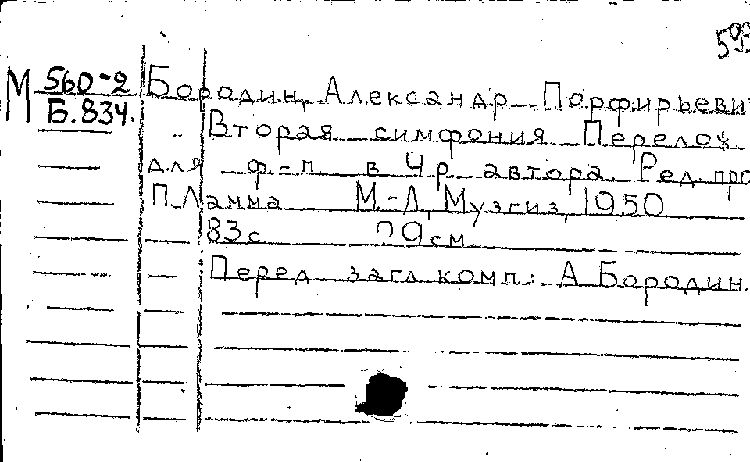 593
М 560-2 Бородин, Александр Порфирьеви
Б.834.
Вторая симфония Перелож
для ф-п в 4 р. автора. Ред. про
П. Ламма М.-Л, Музгиз, 1950
83 с 29 см
Перед загл. комп.: А Бородин.